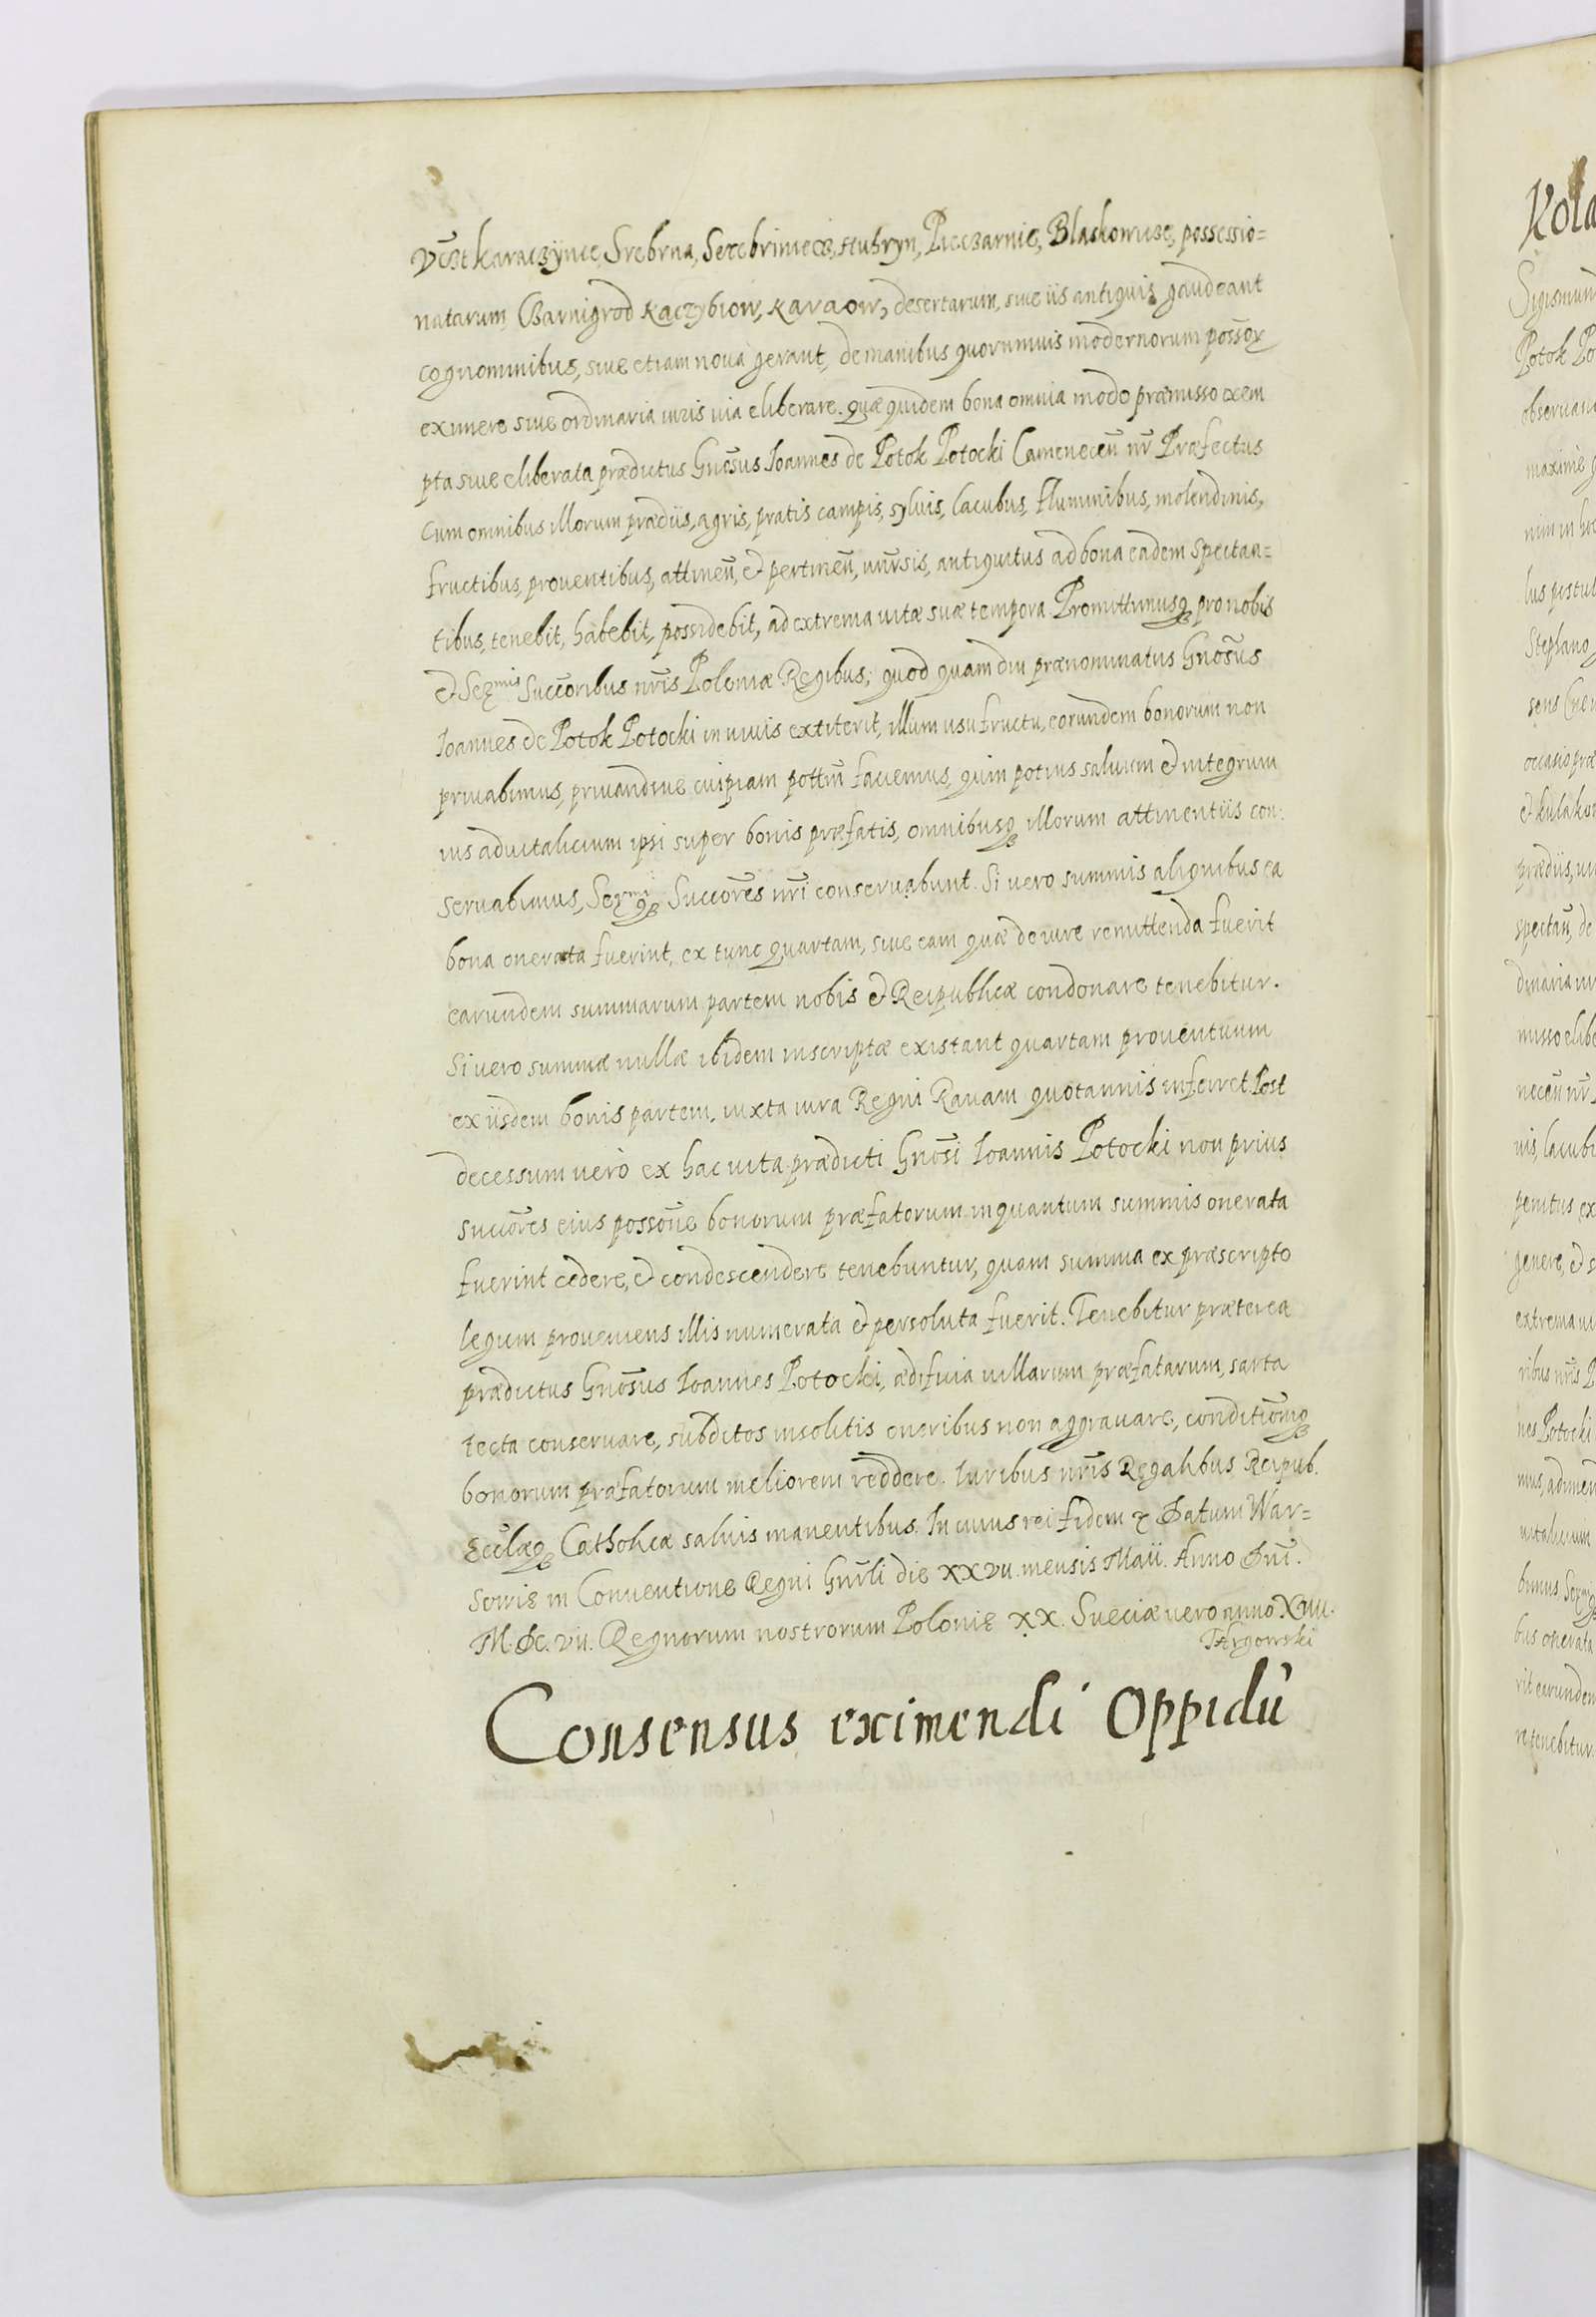 Karaczÿnce, Srebrna, Serebriniecz, Huhryn, Pieczarnie, possessio=
natarum, Czarnigrod Kaczybiow, Karaow, desertarum, siue iis antiquis gaudeant
cognominibus, siue etiam noua gerant, de manibus quorumuis modernorum possor
eximere siue ordinaria iuris uia eliberare. quæ quidem bona omnia modo præmisso exem
pta siue eliberata prædictus Gnōsus Ioannes de Potok Potocki Cameneceñ nr̄ Præfectus
cum omnibus illorum prædiis, agris, pratis campis, syluis, lacubus, fluminibus, molendinis,
fructibus, prouentibus, attineñ, & pertineñ, unr̄sis, antiquitus ad bona eadem spectan=
tibus, tenebit, habebit, possidebit, ad extrema uitæ suæ tempora. Promittimusq pro nobis
& Sermis Succoribus nrīs Poloniæ Regibus; quod quam diu prænominatus Gnōsus
Ioannes de Potok Potocki in uiuis extiterit, illum usufructu, eorundem bonorum non
priuabimus, priuandiue cuipiam pottm̄ faciemus, quin potius saluum & integrum
ius aduitalicium ipsi super bonis præfatis, omnibusq illorum attinentiis con:
seruabimus, Sermiq Succōres nrī conseruabunt. Si uero summis aliquibus ea
bona onerata fuerint, ex tunc quartam, siue eam quæ de iure remittenda fuerit
earundem summarum partem nobis & Reipublicæ condonare tenebitur.
Si uero summæ nullæ ibidem inscriptæ existant quartam prouentuum
ex iisdem bonis partem, iuxta iura Regni Rauam quotannis inferret. Post
decessum uerò ex hac uita prædicti Gnōsi Ioannis Potocki non prius
succōres eius possōne bonorum præfatorum inquantum summis onerata
fuerint cedere, & condescendere tenebuntur, quam summa ex præscripto
legum proueniens illis numerata & persoluta fuerit. Tenebitur præterea
prædictus Gnōsus Ioannes Potocki, ædificia uillarum præfatarum, sarta
tecta conseruare, subditos insolitis oneribus non aggrauare, conditiōmq
bonorum præfatorum meliorem reddere. Iuribus nrīs Regalibus Reipub.
Ecclæq Catholicæ saluis manentibus. In cuius rei fidem & Datum War=
souiæ in Conuentione Regni Gnr̄li die XXVII. mensis Maii. Anno Dnī.
M.DC.VII. Regnorum nostrorum Poloniæ XX. Sueciæ uero anno XIIII.
Consensus eximendi Oppidū
Kola
Sigismun
Potok Po
obseruan
maxime
nim in hoc
lus postul
Stephano
occasio præ
& kulakow
prædiis, un
spectañ, de
dinaria iur
misso elibe
neceñ nr̄
uis, lacubu
penitus ex
genere, & s
extrema ui
ribus nrīs P
nes Potocki
mus, adimen
uitalicium
bimus Sermiq
bus onerata
rit earundem
re tenebitur